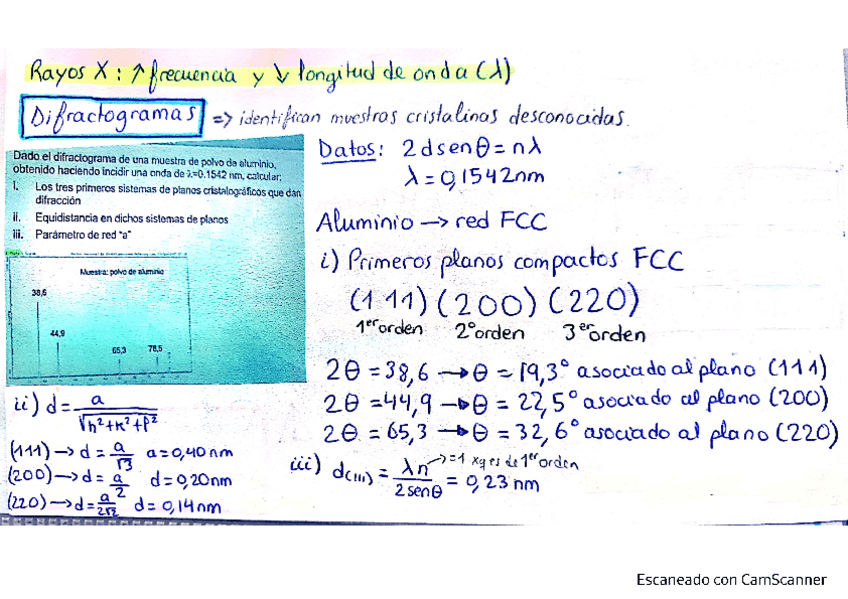 Rayos X : ↑ frecuencia y ↓ longitud de onda (λ)
Difractogramas => identifican muestras cristalinas desconocidas.
Dado el difractograma de una muestra de polvo de aluminio,
obtenido haciendo incidir una onda de λ=0.1542 nm, calcular:
I. Los tres primeros sistemas de planos cristalográficos que dan
difracción
ii. Equidistancia en dichos sistemas de planos
iii. Parámetro de red "a"
Muestra: polvo de aluminio
38,6
44,9
65,3
78,5
Datos: 2dsenθ = nλ
λ = 0,1542nm
Aluminio → red FCC
i) Primeros planos compactos FCC
(111) (200) (220)
1er orden 2º orden 3er orden
2θ = 38,6 → θ = 19,3º asociado al plano (111)
2θ = 44,9 → θ = 22,5º asociado al plano (200)
2θ = 65,3 → θ = 32,6º asociado al plano (220)
ii) d = a / √h²+k²+l²
(111) → d = a/√3 a = 0,40nm
(200) → d = a/2 d = 0,20nm
(220) → d = a/2√2 d = 0,14nm
iii) d(111) = λn / 2senθ = 0,23 nm
→ =1 xq es de 1er orden
Escaneado con CamScanner